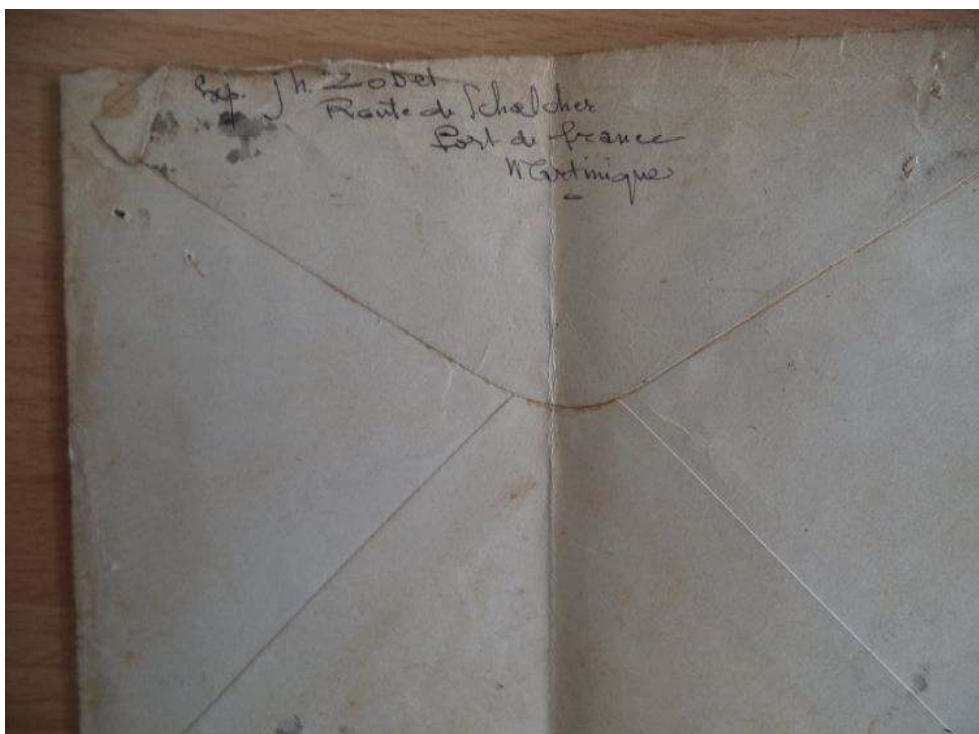 Exp. Jh. Zobel
Route de Schœlcher
Fort de france
Martinique